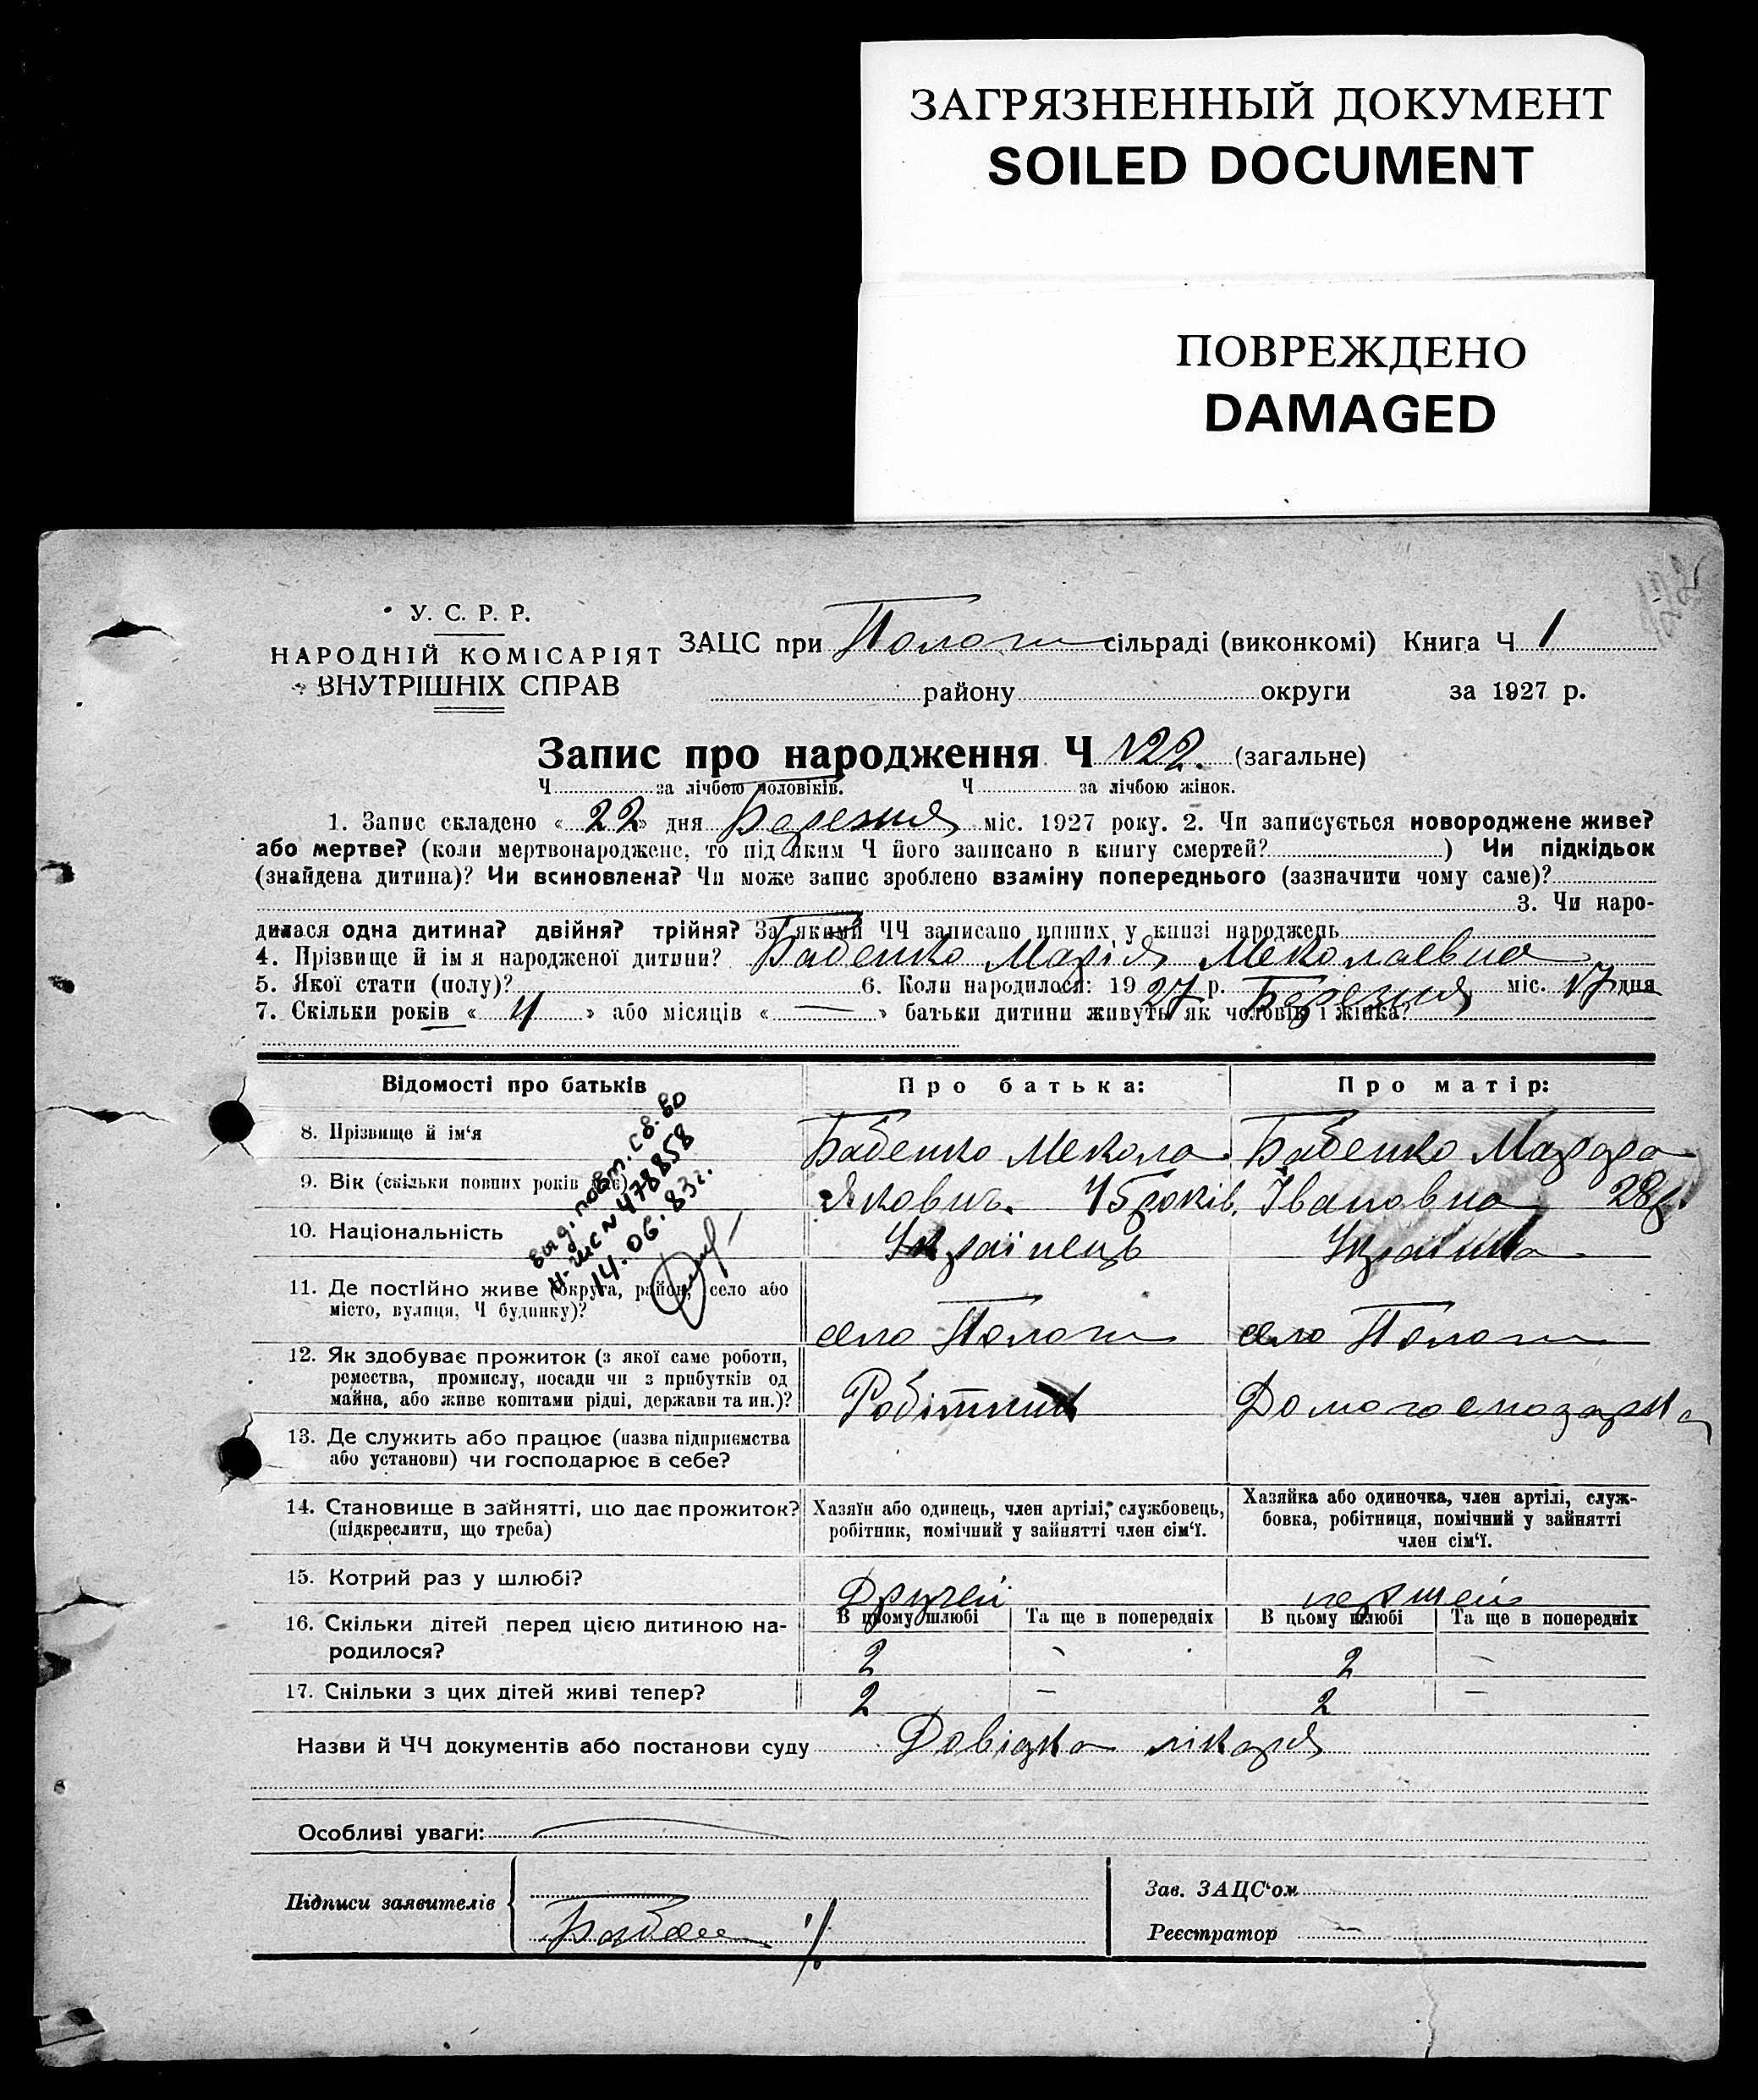 ЗАГРЯЗНЕННЫЙ ДОКУМЕНТ
SOILED DOCUMENT
ПОВРЕЖДЕНО
DAMAGED
У. С. Р. Р.
НАРОДНІЙ КОМІСАРІЯТ
ВНУТРІШНІХ СПРАВ
ЗАЦС при Пологи сільраді (виконкомі) Книга Ч 1
району округи за 1927 р.
Запис про народження Ч №22. (загальне)
Ч за лічбою чоловіків. Ч за лічбою жінок.
1. Запис складено « 22 » дня Березня міс. 1927 року. 2. Чи записується новороджене живе?
або мертве? (коли мертвонароджене, то під яким Ч його записано в книгу смертей? ) Чи підкідьок
(знайдена дитина)? Чи всиновлена? Чи може запис зроблено взаміну попереднього (зазначити чому саме)?
3. Чи наро-
дилася одна дитина? двійня? трійня? За якими ЧЧ записано инших у книзі народжень
4. Прізвище й ім я народженої дитини? Бабенко Марія Меколаевна
5. Якої стати (полу)? 6. Коли народилося: 19 27 р. Березня міс. 17 дня
7. Скільки років « 4 » або місяців « — » батьки дитини живуть як чоловік і жінка?
Відомості про батьків
Про батька:
Про матір:
8. Прізвище й ім‘я
Бабенко Мекола
Бабенко
9. Вік (скільки повних років має)
Якович. 45 років.
Івановна 28р.
вид. повт. св. во
№ 478858
14.06.83г.
10. Національність
Українець
Українка
11. Де постійно живе (округа, район, село або
місто, вулиця, Ч будинку)?
село Пологи
село Пологи
12. Як здобуває прожиток (з якої саме роботи,
ремества, промислу, посади чи з прибутків од
майна, або живе коштами рідні, держави та ин.)?
Робітник
Домогосподарка
13. Де служить або працює (назва підприємства
або установи) чи господарює в себе?
14. Становище в зайнятті, що дає прожиток?
(підкреслити, що треба)
Хазяїн або одинець, член артілі, службовець,
робітник, помічний у зайнятті член сім‘ї.
Хазяйка або одиночка, член артілі, служ-
бовка, робітниця, помічний у зайнятті
член сім‘ї.
15. Котрий раз у шлюбі?
Другей
первшей
16. Скільки дітей перед цією дитиною на-
родилося?
В цьому шлюбі Та ще в попередніх В цьому шлюбі Та ще в попередніх
2 - 2 -
17. Скільки з цих дітей живі тепер?
2 - 2 -
Назви й ЧЧ документів або постанови суду Довідка лікаря
Особливі уваги:
Підписи заявителів
Зав. ЗАЦС‘ом
Реєстратор —